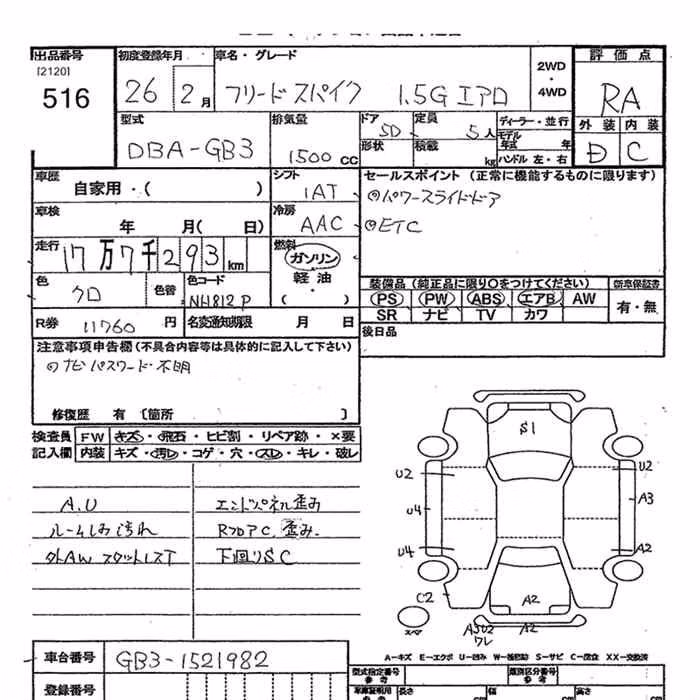 出品番号 初度登録年月 車名・グレード 2WD・4WD 評価点
[2120]
516 26 2月 フリードスパイク 1.5Gエアロ RA
型式 排気量 ドア 5D 定員 5人 ディーラー・並行 外装 内装
モデル年式 年
DBA-GB3 1500cc 形状 積載 kg ハンドル 左・右 D C
車歴 シフト セールスポイント (正常に機能するものに限ります)
自家用・( ) IAT ◎パワースライドドア
車検 冷房 ◎ETC
年 月( 日) AAC
走行 燃料
17万7千293km ガソリン
軽油
・( )
色 色替 色コード 装備品(純正品に限り○をつけてください) 新車保証書
クロ NH812P PS PW ABS エアB AW 有・無
SR ナビ TV カワ
R券 11760円 名変通知期限 月 日 後日品
注意事項申告欄(不具合内容等は具体的に記入して下さい)
◎ナビパスワード不明
修復歴 有 〔箇所 〕
検査員 FW キズ・飛石・ヒビ割・リペア跡・×要
記入欄 内装 キズ・汚レ・コゲ・穴・スレ・キレ・破レ
A.U エンドパネル歪み
ルームしみ汚れ RフロアC,歪み.
外AWスタットレスT 下回りSC
S1
U2 U2
U4 A3
U4 A2
C2 A2
スペア ワレ A2
A-キズ E-エクボ U-凹み W-補修跡 S-サビ C-腐食 XX-交換済
車台番号 GB3-1521982 型式指定番号 参考 類別区分番号 参考
登録番号 長さ cm 幅 cm 高さ cm